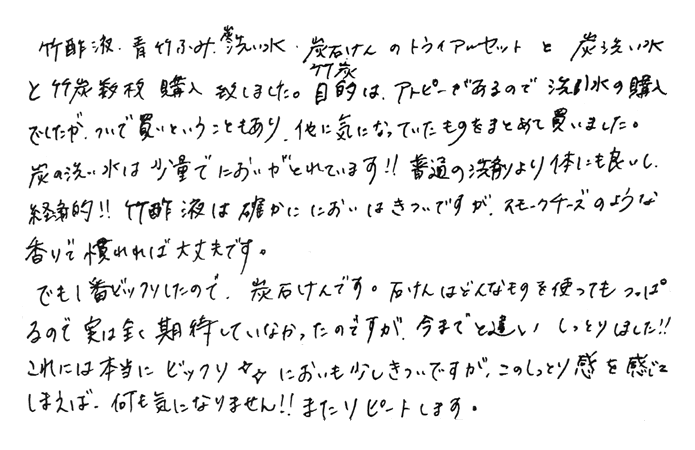 竹酢液・青竹ふみ・炭洗い水・炭石けんのトライアルセットと炭洗い水
と竹炭数枚購入致しました。竹炭目的は、アトピーがあるので洗い水の購入
でしたが、ついで買いということもあり、他に気になっていたものをまとめて買いました。
炭の洗い水は少量でにおいがとれています!!普通の洗剤より体にも良いし、
経済的!!竹酢液は確かににおいはきついですが、スモークチーズのような
香りで慣れれば大丈夫です。
でも1番ビックリしたので、炭石けんです。石けんはどんなものを使ってもつっぱ
るので実は全く期待していなかったのですが、今までと違いしっとりしました!!
これには本当にビックリ☆☆においも少しきついですが、このしっとり感を感じて
しまえば、何も気になりません!!またリピートします。